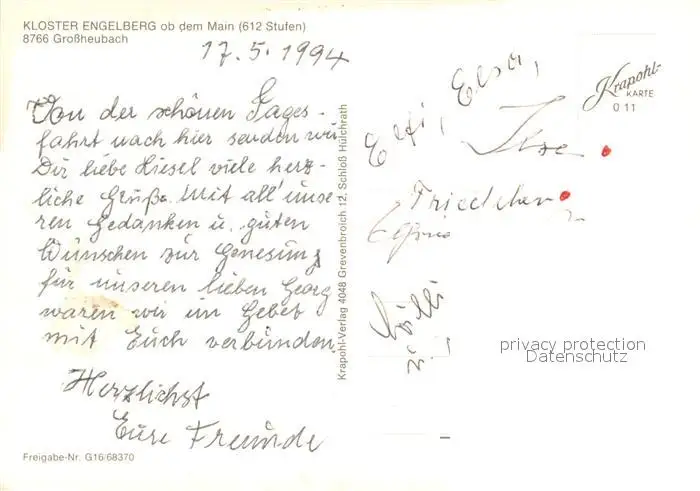 KLOSTER ENGELBERG ob dem Main (612 Stufen)
8766 Großheubach
17.5.1994
Von der schönen Tages-
fahrt nach hier senden wir
Dir liebe Hiesel viele herz-
liche Grüße. Mit all' unse-
ren Gedanken u. guten
Wünschen zur Genesung
für unseren lieben Georg
waren wir im Gebet
mit Euch verbunden.
Herzlichst
Eure Freunde
Freigabe-Nr. G16/68370
Krapohl-Verlag 4048 Grevenbroich 12, Schloß Hülchrath
Krapohl-
KARTE
O 11
Elfi, Elsa,
Ilse
Friedchen
u.
privacy protection
Datenschutz